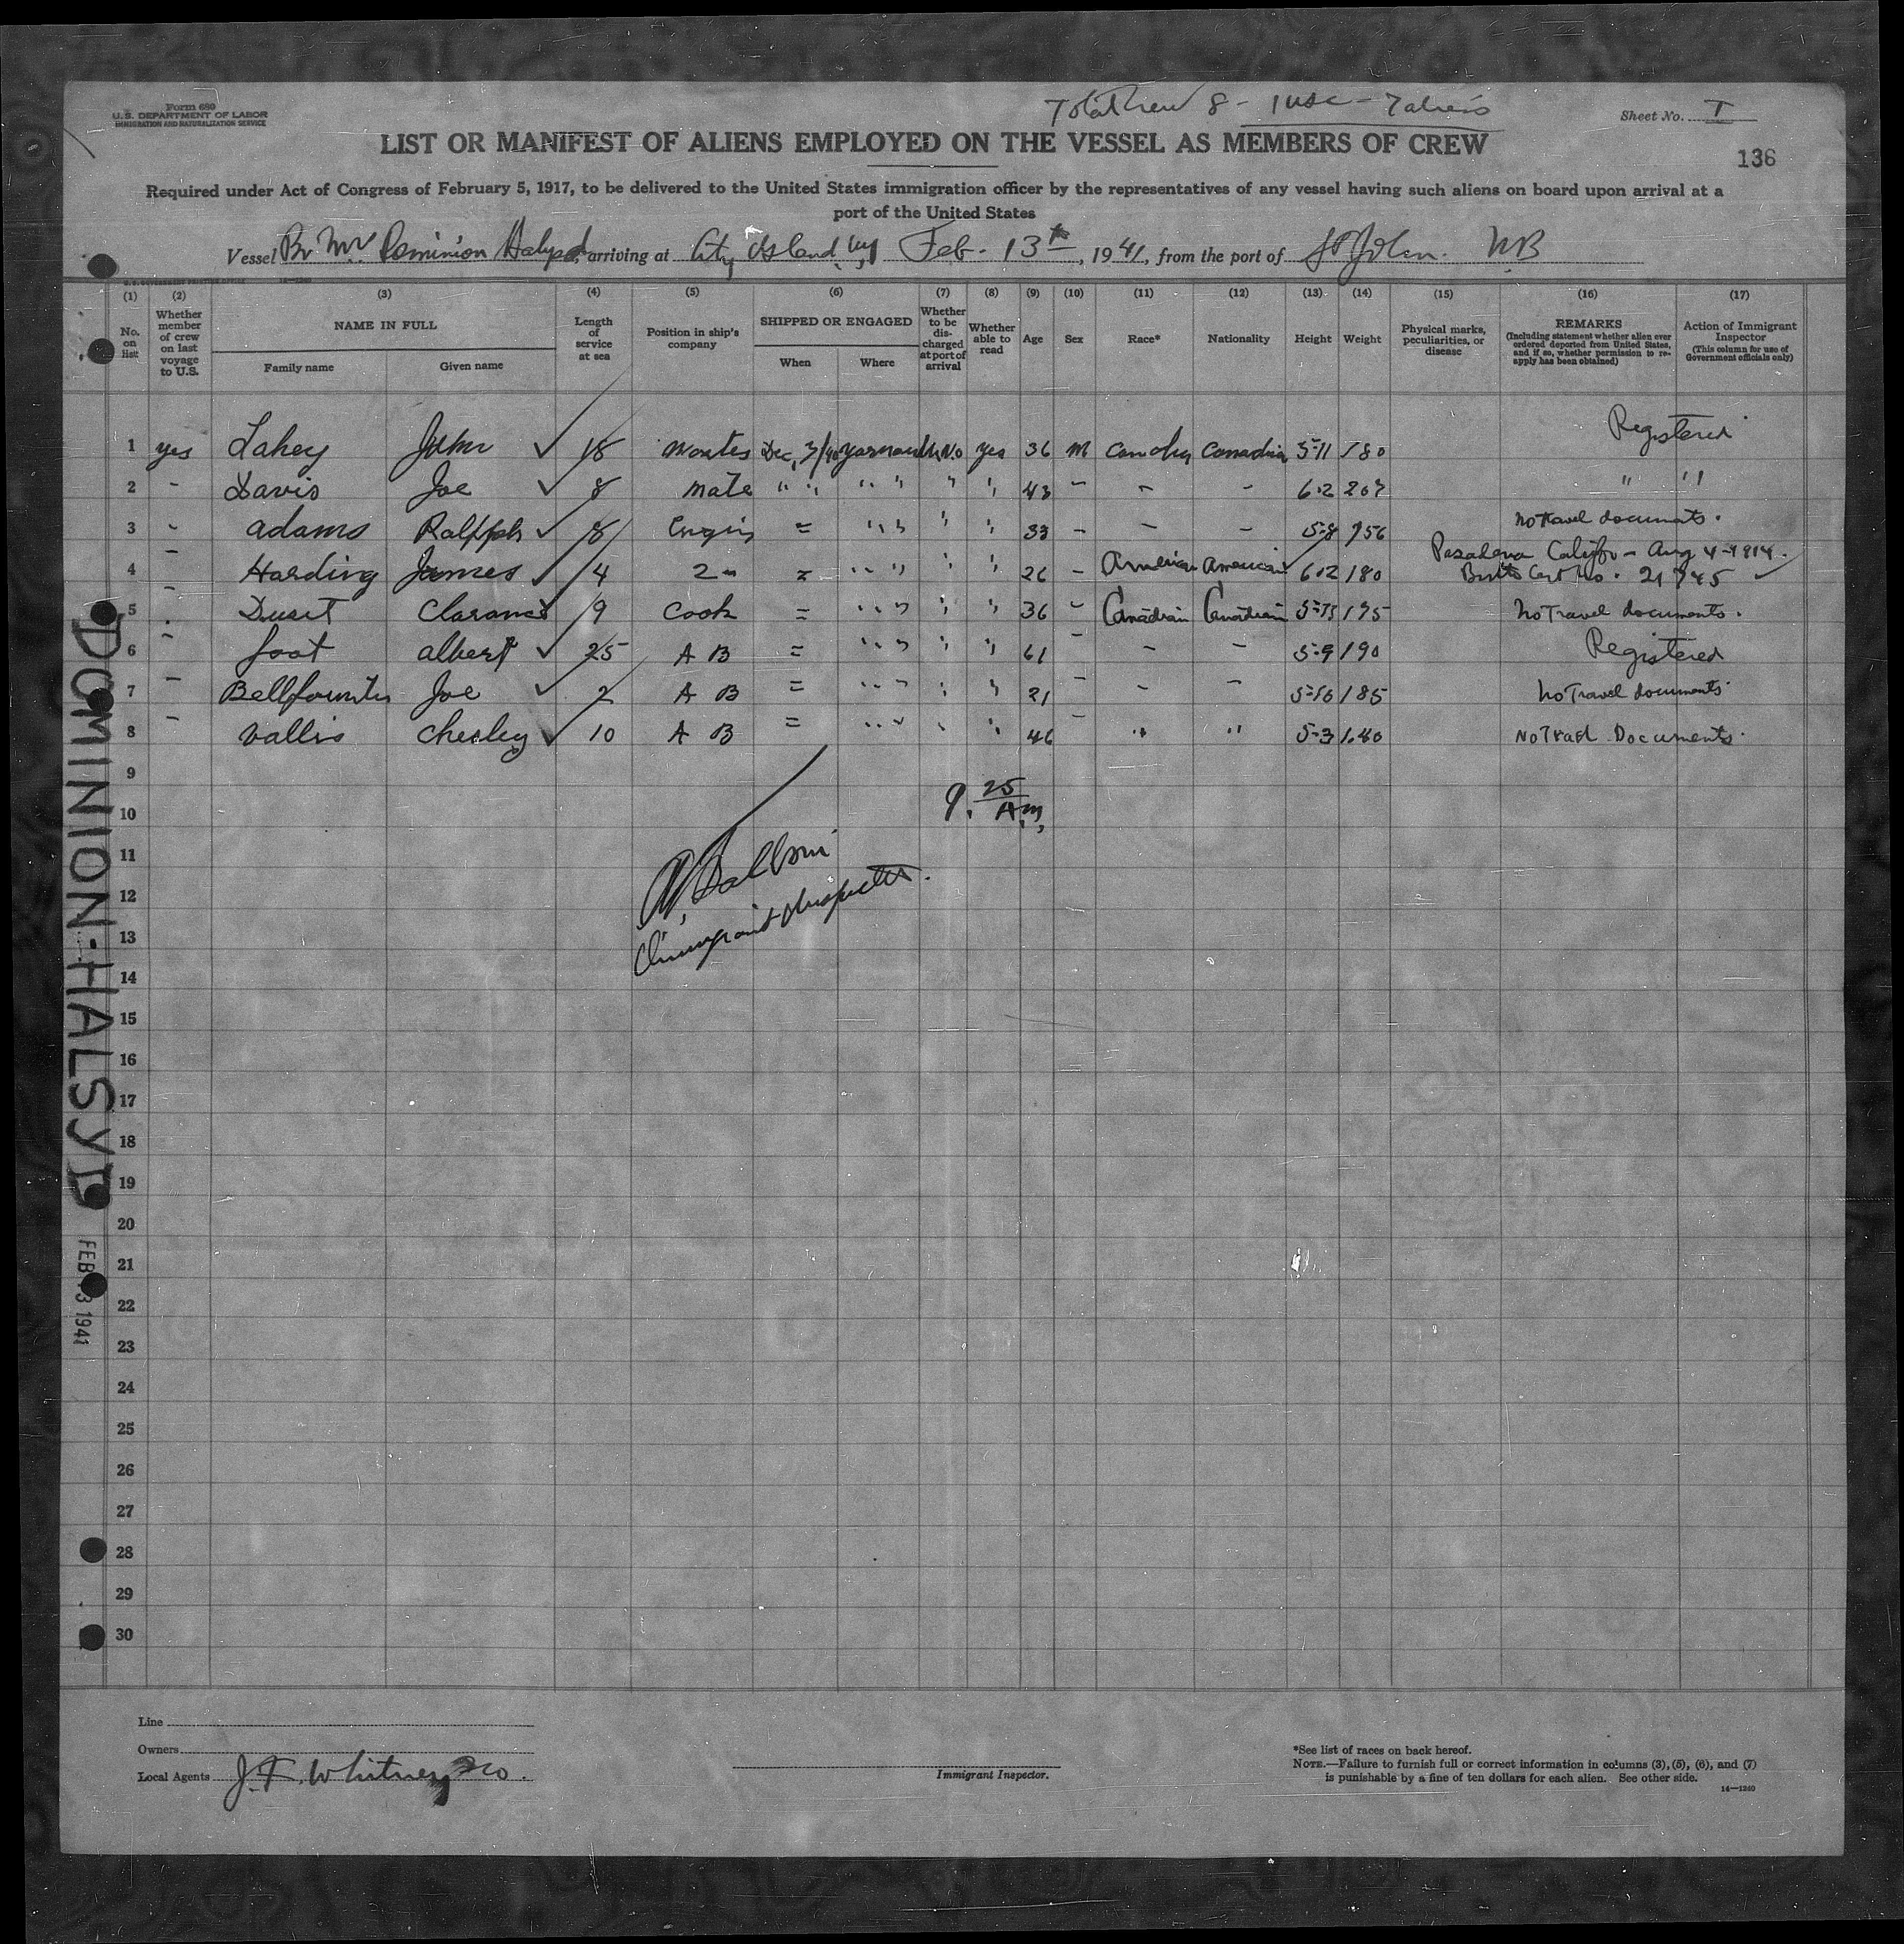 Form 680
U.S. DEPARTMENT OF LABOR
IMMIGRATION AND NATURALIZATION SERVICE
Total Crew 8 - 1 USC - 7 aliens
Sheet No. I
LIST OR MANIFEST OF ALIENS EMPLOYED ON THE VESSEL AS MEMBERS OF CREW
136
Required under Act of Congress of February 5, 1917, to be delivered to the United States immigration officer by the representatives of any vessel having such aliens on board upon arrival at a
port of the United States
Vessel Br. M.V. Dominion Halsyd, arriving at City Island, NY Feb. 13th, 1941, from the port of St John. NB
(1) (2) (3) (4) (5) (6) (7) (8) (9) (10) (11) (12) (13) (14) (15) (16) (17)
No. on list
Whether member of crew on last voyage to U.S.
NAME IN FULL
Family name
Given name
Length of service at sea
Position in ship's company
SHIPPED OR ENGAGED
When
Where
Whether to be discharged at port of arrival
Whether able to read
Age
Sex
Race*
Nationality
Height
Weight
Physical marks, peculiarities, or disease
REMARKS
(Including statement whether alien ever ordered deported from United States, and if so, whether permission to reapply has been obtained)
Action of Immigrant Inspector
(This column for use of Government officials only)
1 yes Lahey John ✓ 18 Dec, 3/40 Yarmouth No yes 36 M Canadian 5-11 180 Registered
2 - Davis Joe ✓ 8 mate " " " " " " 43 - - - 6-2 207 " "
3 - adams Ralpph ✓ 8 Engin = " " " " 33 - - - 5-8 156 No travel documents.
4 - Harding James ✓ 4 2 = " " " " 26 - American American 6-2 180 Pasadena Califo - Aug 4-1914. Birth Cert No. 21745 ✓
5 - Dusit Clarance ✓ 9 Cook = " " " " 36 - Canadian Canadian 175 No Travel documents.
6 - foot albert ✓ 25 A B = " " " " 61 - - - 5-9 190 Registered
7 - Bellfountin Joe ✓ 2 A B = " " " " 21 - - - 5-10 185 No Travel documents
8 - Vallis Chesley ✓ 10 A B = " " " " 46 - " " 5-3 140 No Travel Documents.
9
10
9.25 A.M.
11
12
13
Immigrant Inspector.
14
15
16
17
18
19
20
21
22
23
24
25
26
27
28
29
30
DOMINION-HALSYD
FEB 13 1941
Line
Owners
Local Agents J.F. Whitney & Co.
Immigrant Inspector.
*See list of races on back hereof.
NOTE.—Failure to furnish full or correct information in columns (3), (5), (6), and (7)
is punishable by a fine of ten dollars for each alien. See other side.
14—1240